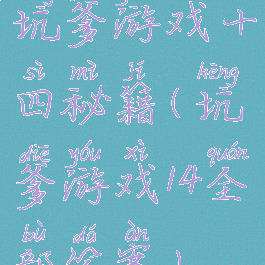 坑爹游戏十
sì mì jí kēng
四秘籍(坑
diē yóu xì quán
爹游戏14全
bù dá àn
部答案)